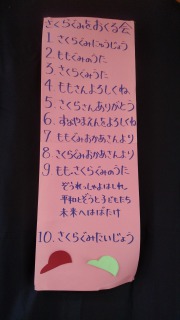 さくらぐみをおくる会
1. さくらぐみにゅうじょう
2. ももぐみのうた
3. さくらぐみうた
4. ももさんよろしくね
5. さくらさんありがとう
6. すなやまえんをよろしくね
7. ももぐみおかあさんより
8 さくらぐみおかあさんより
9 もも、さくらぐみのうた
ぞうれっしゃよはしれ
平和とぞうと子どもたち
未来へはばたけ
10. さくらぐみたいじょう